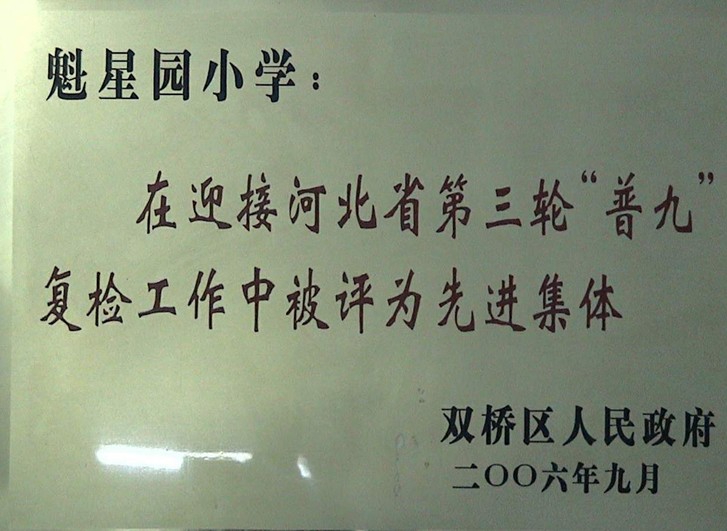 魁星园小学：
在迎接河北省第三轮“普九”
复检工作中被评为先进集体
双桥区人民政府
二〇〇六年九月